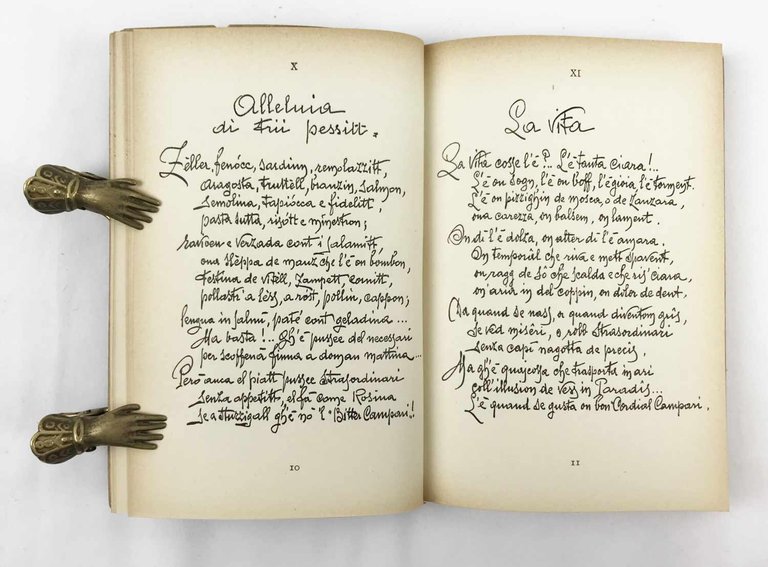 X
Alleluia
di trii pessitt.
Zeller, fenócc, sardinn, remolazzitt,
aragosta, truttell, branzin, salmon,
semolina, tapiócca e fidelitt,
pasta sutta, risott e minestron;
ravioeu e verzada cont i salamitt,
ona sleppa de manz che l'è on bombon,
testina de vitell, zampett, cornitt,
pollaster a less, a rost, pollin, cappon;
lengua in salmì, paté cont geladina...
Ma basta!.. Gh'è pussee del necessari
per scoffena finna a doman mattina...
Però anca el piatt pussee strasordinari
senza appetitt, el fa come Rosina
se a stuzzigall gh'è no 'l "Bitter Campari"!
10
XI
La Vita
La vita cosse l'è?.. L'è tanta ciara!..
L'è on sogn, l'è on boff, l'è gioia, l'è torment.
L'è on pizzighin de mosca, o de zanzara,
ona carezza, on balsem, on lament.
On dì l'è dolza, on alter dì l'è amara.
On temporal che riva e mett spavent,
on ragg de sô che scalda e che ris'ciara,
on'aria in del coppin, on dolor de dent.
Da quand se nass, a quand diventom gris,
se ved miseri, o robb strasordinari
senza capì nagotta de precis.
Ma gh'è quajcossa che trasporta in ari
coll'illusion de vess in Paradis...
L'è quand se gusta on bon Cordial Campari.
11